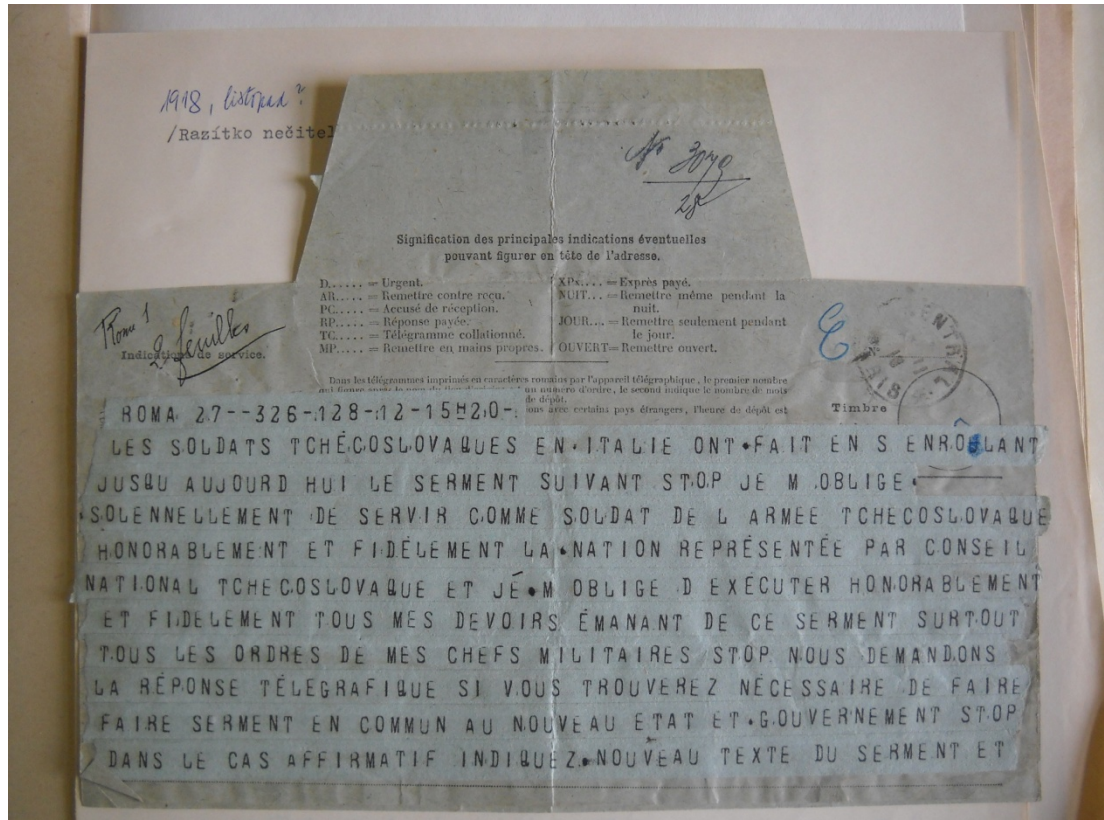 1918, listopad?
/Razítko nečitel
No 3079
28
Signification des principales indications éventuelles
pouvant figurer en tête de l'adresse.
D..... = Urgent.
AR..... = Remettre contre reçu.
PC..... = Accusé de réception.
RP..... = Réponse payée.
TC..... = Télégramme collationné.
MP..... = Remettre en mains propres.
XPx... = Exprès payé.
NUIT... = Remettre même pendant la
nuit.
JOUR... = Remettre seulement pendant
le jour.
OUVERT = Remettre ouvert.
Rome 1
2 feuilles
Indications de service.
E
CENTRAL
Timbre
Dans les télégrammes imprimés en caractères romains par l'appareil télégraphique, le premier nombre
un numéro d'ordre, le second indique le nombre de mots
de dépôt.
ons avec certains pays étrangers, l'heure de dépôt est
ROMA 27--326-128-12-15H20-
LES SOLDATS TCHÉCOSLOVAQUES EN ITALIE ONT FAIT EN S ENRÔLANT
JUSQU AUJOURD HUI LE SERMENT SUIVANT STOP JE M OBLIGE
SOLENNELLEMENT DE SERVIR COMME SOLDAT DE L ARMEE TCHECOSLOVAQUE
HONORABLEMENT ET FIDÉLEMENT LA NATION REPRÉSENTÉE PAR CONSEIL
NATIONAL TCHECOSLOVAQUE ET JÉ M OBLIGE D EXÉCUTER HONORABLEMENT
ET FIDELEMENT TOUS MES DEVOIRS ÉMANANT DE CE SERMENT SURTOUT
TOUS LES ORDRES DE MES CHEFS MILITAIRES STOP NOUS DEMANDONS
LA RÉPONSE TÉLEGRAFIQUE SI VOUS TROUVEREZ NÉCESSAIRE DE FAIRE
FAIRE SERMENT EN COMMUN AU NOUVEAU ETAT ET GOUVERNEMENT STOP
DANS LE CAS AFFIRMATIF INDIQUEZ NOUVEAU TEXTE DU SERMENT ET